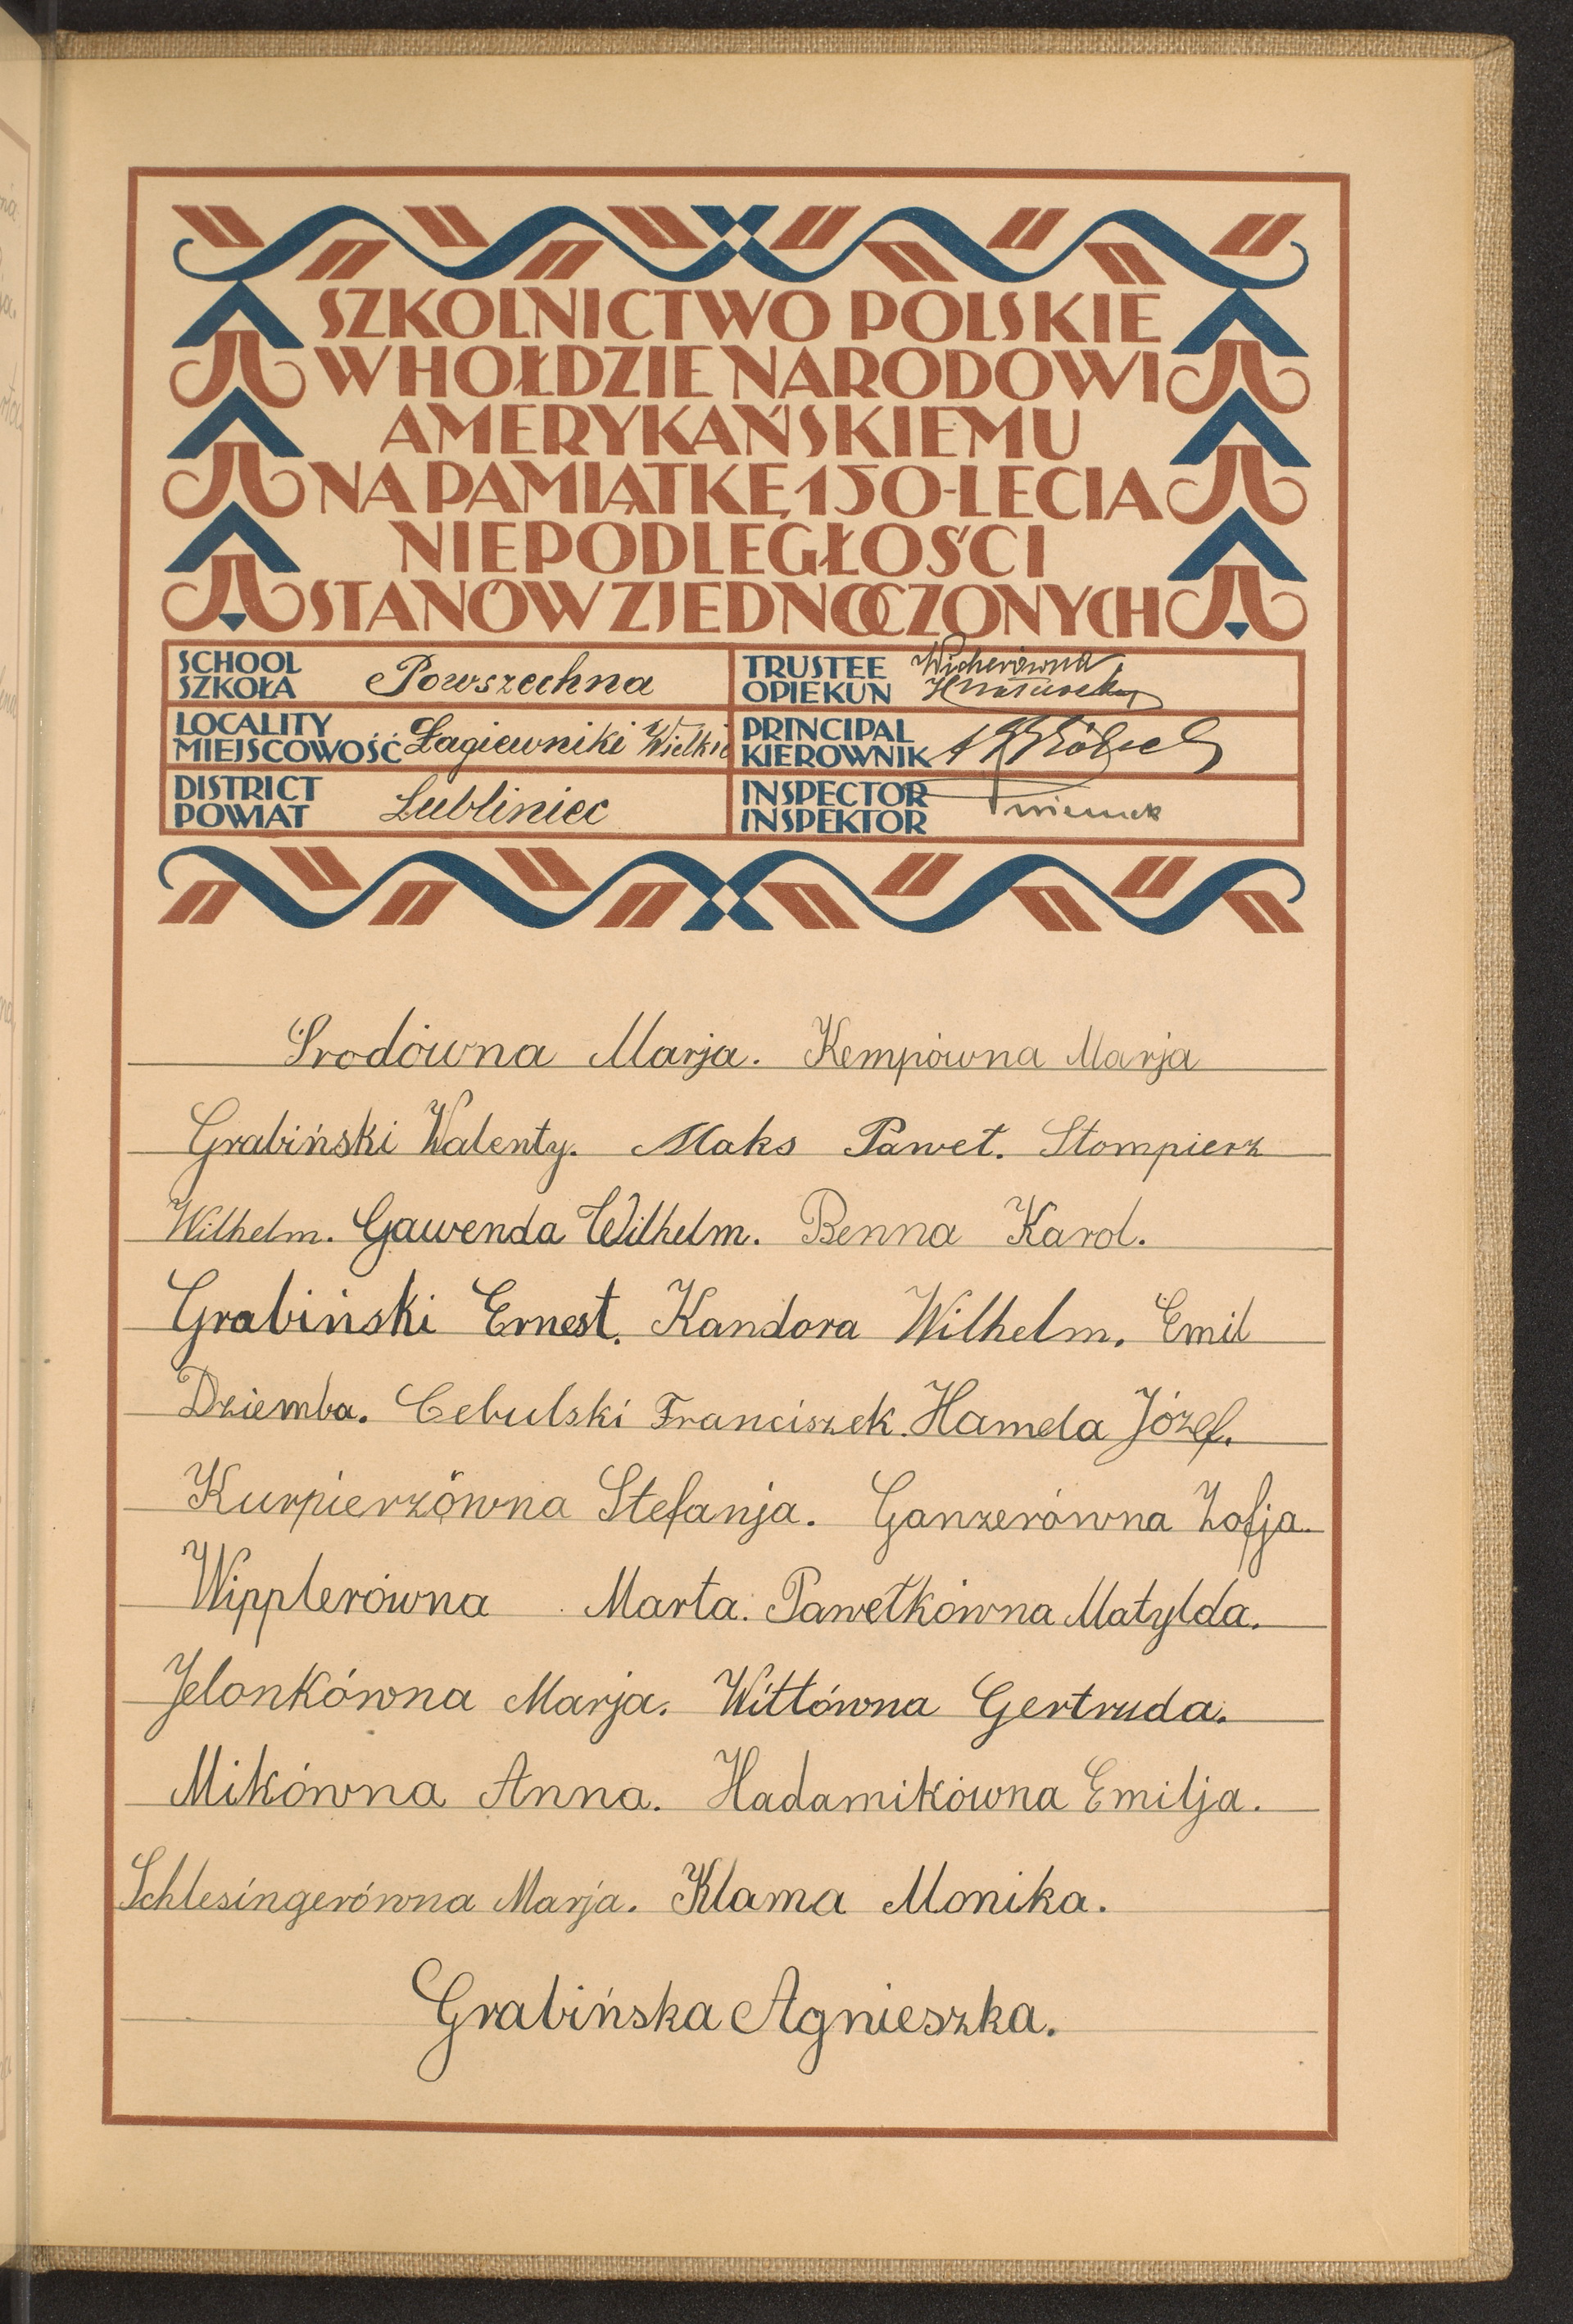 SZKOLNICTWO POLSKIE
W HOŁDZIE NARODOWI
AMERYKAŃSKIEMU
NA PAMIĄTKĘ 150-LECIA
NIEPODLEGŁOŚCI
STANÓW ZJEDNOCZONYCH
SCHOOL
SZKOŁA Powszechna
TRUSTEE Wicherówna
OPIEKUN
LOCALITY
MIEJSCOWOŚĆ Łagiewniki Wielkie
PRINCIPAL
KIEROWNIK
DISTRICT
POWIAT Lubliniec
INSPECTOR
INSPEKTOR
Srodówna Marja. Kempówna Marja
Grabiński Walenty. Maks Paweł. Stompierz
Wilhelm. Gawenda Wilhelm. Benna Karol.
Grabiński Ernest. Kandora Wilhelm. Emil
Dziemba. Cebulski Franciszek. Hamela Józef.
Kurpierzówna Stefanja. Ganzerówna Zofja.
Wipplerówna Marta. Pawełkówna Matylda.
Jelonkówna Marja. Wittówna Gertruda.
Mikówna Anna. Hadamikówna Emilja.
Schlesingerówna Marja. Klama Monika.
Grabińska Agnieszka.